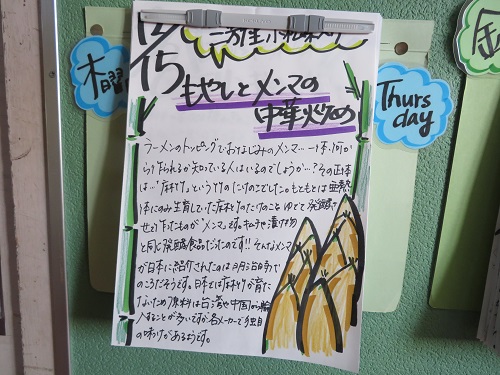 木曜
12/15
もやしとメンマの
中華炒め
Thurs
day
金
ラーメンのトッピングでおなじみのメンマ…一体、何か
ら作られるか知っている人はいるのでしょうか…?その正体
は…「麻竹」という竹のたけのこでした。もともとは亜熱
帯にのみ生育していた麻竹のたけのこを ゆでて発酵さ
せて作ったものが"メンマ"です。キムチや漬け物
と同じ発酵食品だったのです!!そんなメンマ
が日本に紹介されたのは明治時代
のころだそうです。日本では麻竹が育た
ないため原料は台湾や中国から輸
入することが多いですが各メーカーで独自
の味つけがあるそうです。